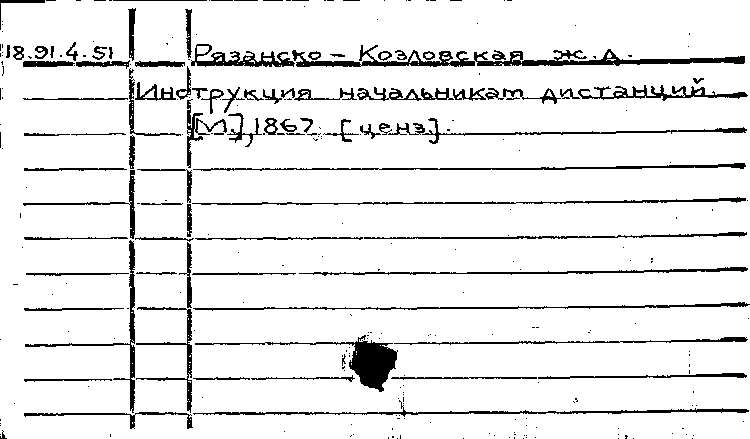 18.91.4.51 Рязанско-Козловская ж.д.
Инструкция начальникам дистанций.
[М.], 1867 [ценз].